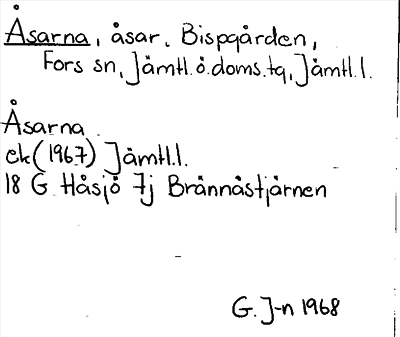 Åsarna, åsar, Bispgården,
Fors sn, Jämtl. ö. doms. tg, Jämtl. l.
Åsarna
ek (1967) Jämtl. l.
18 G Håsjö 7j Brännåstjärnen
G. J-n 1968